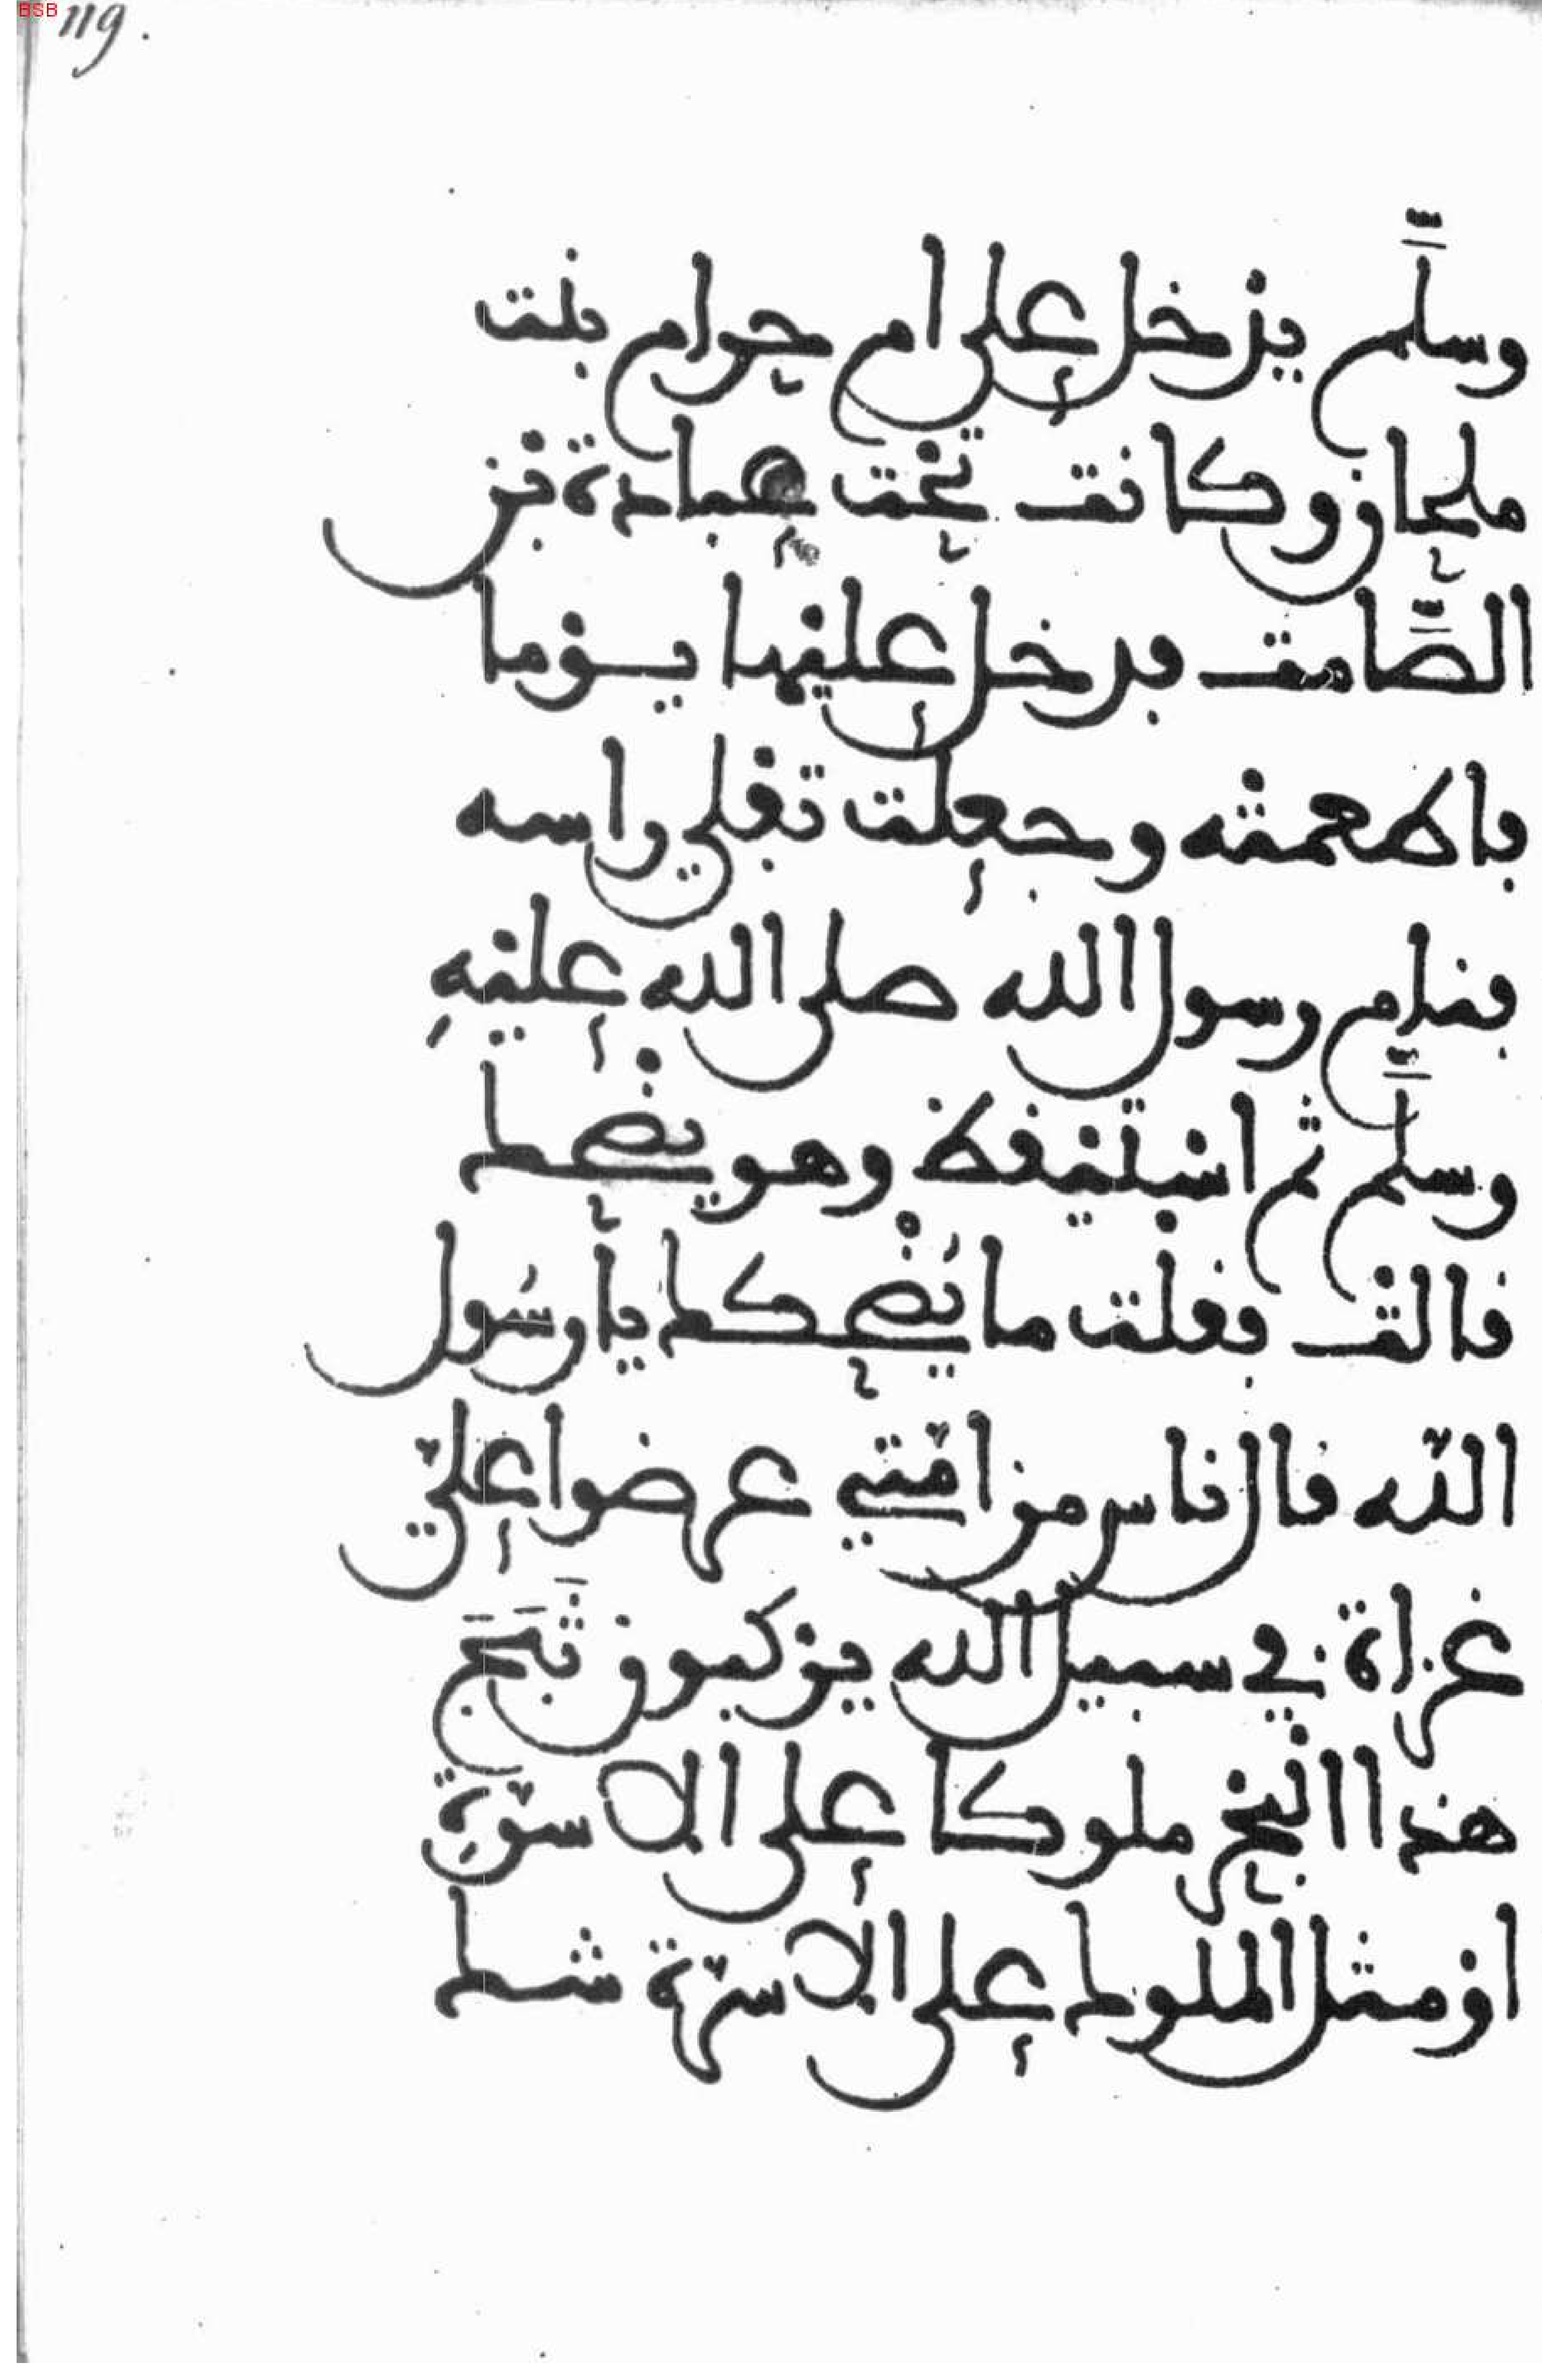 119.
وسلّم يدخل على ام حرام بنت
ملحان وكانت تحت عبادة بن
الصّامت فدخل عليها يوما
فاطعمته وجعلت تفلي راسه
فنام رسول الله صلى الله عليه
وسلّم ثم استيقظ وهو يضحك
قالت فقلت ما يُضحكك يا رسُول
اللّه قال ناس من امّتي عرضوا عليّ
غزاة في سبيل الله يركبون ثَبَجَ
هذا البحر ملوكا على الاسرّةِ
او مثل الملوك على الاسرّة شك
BSB